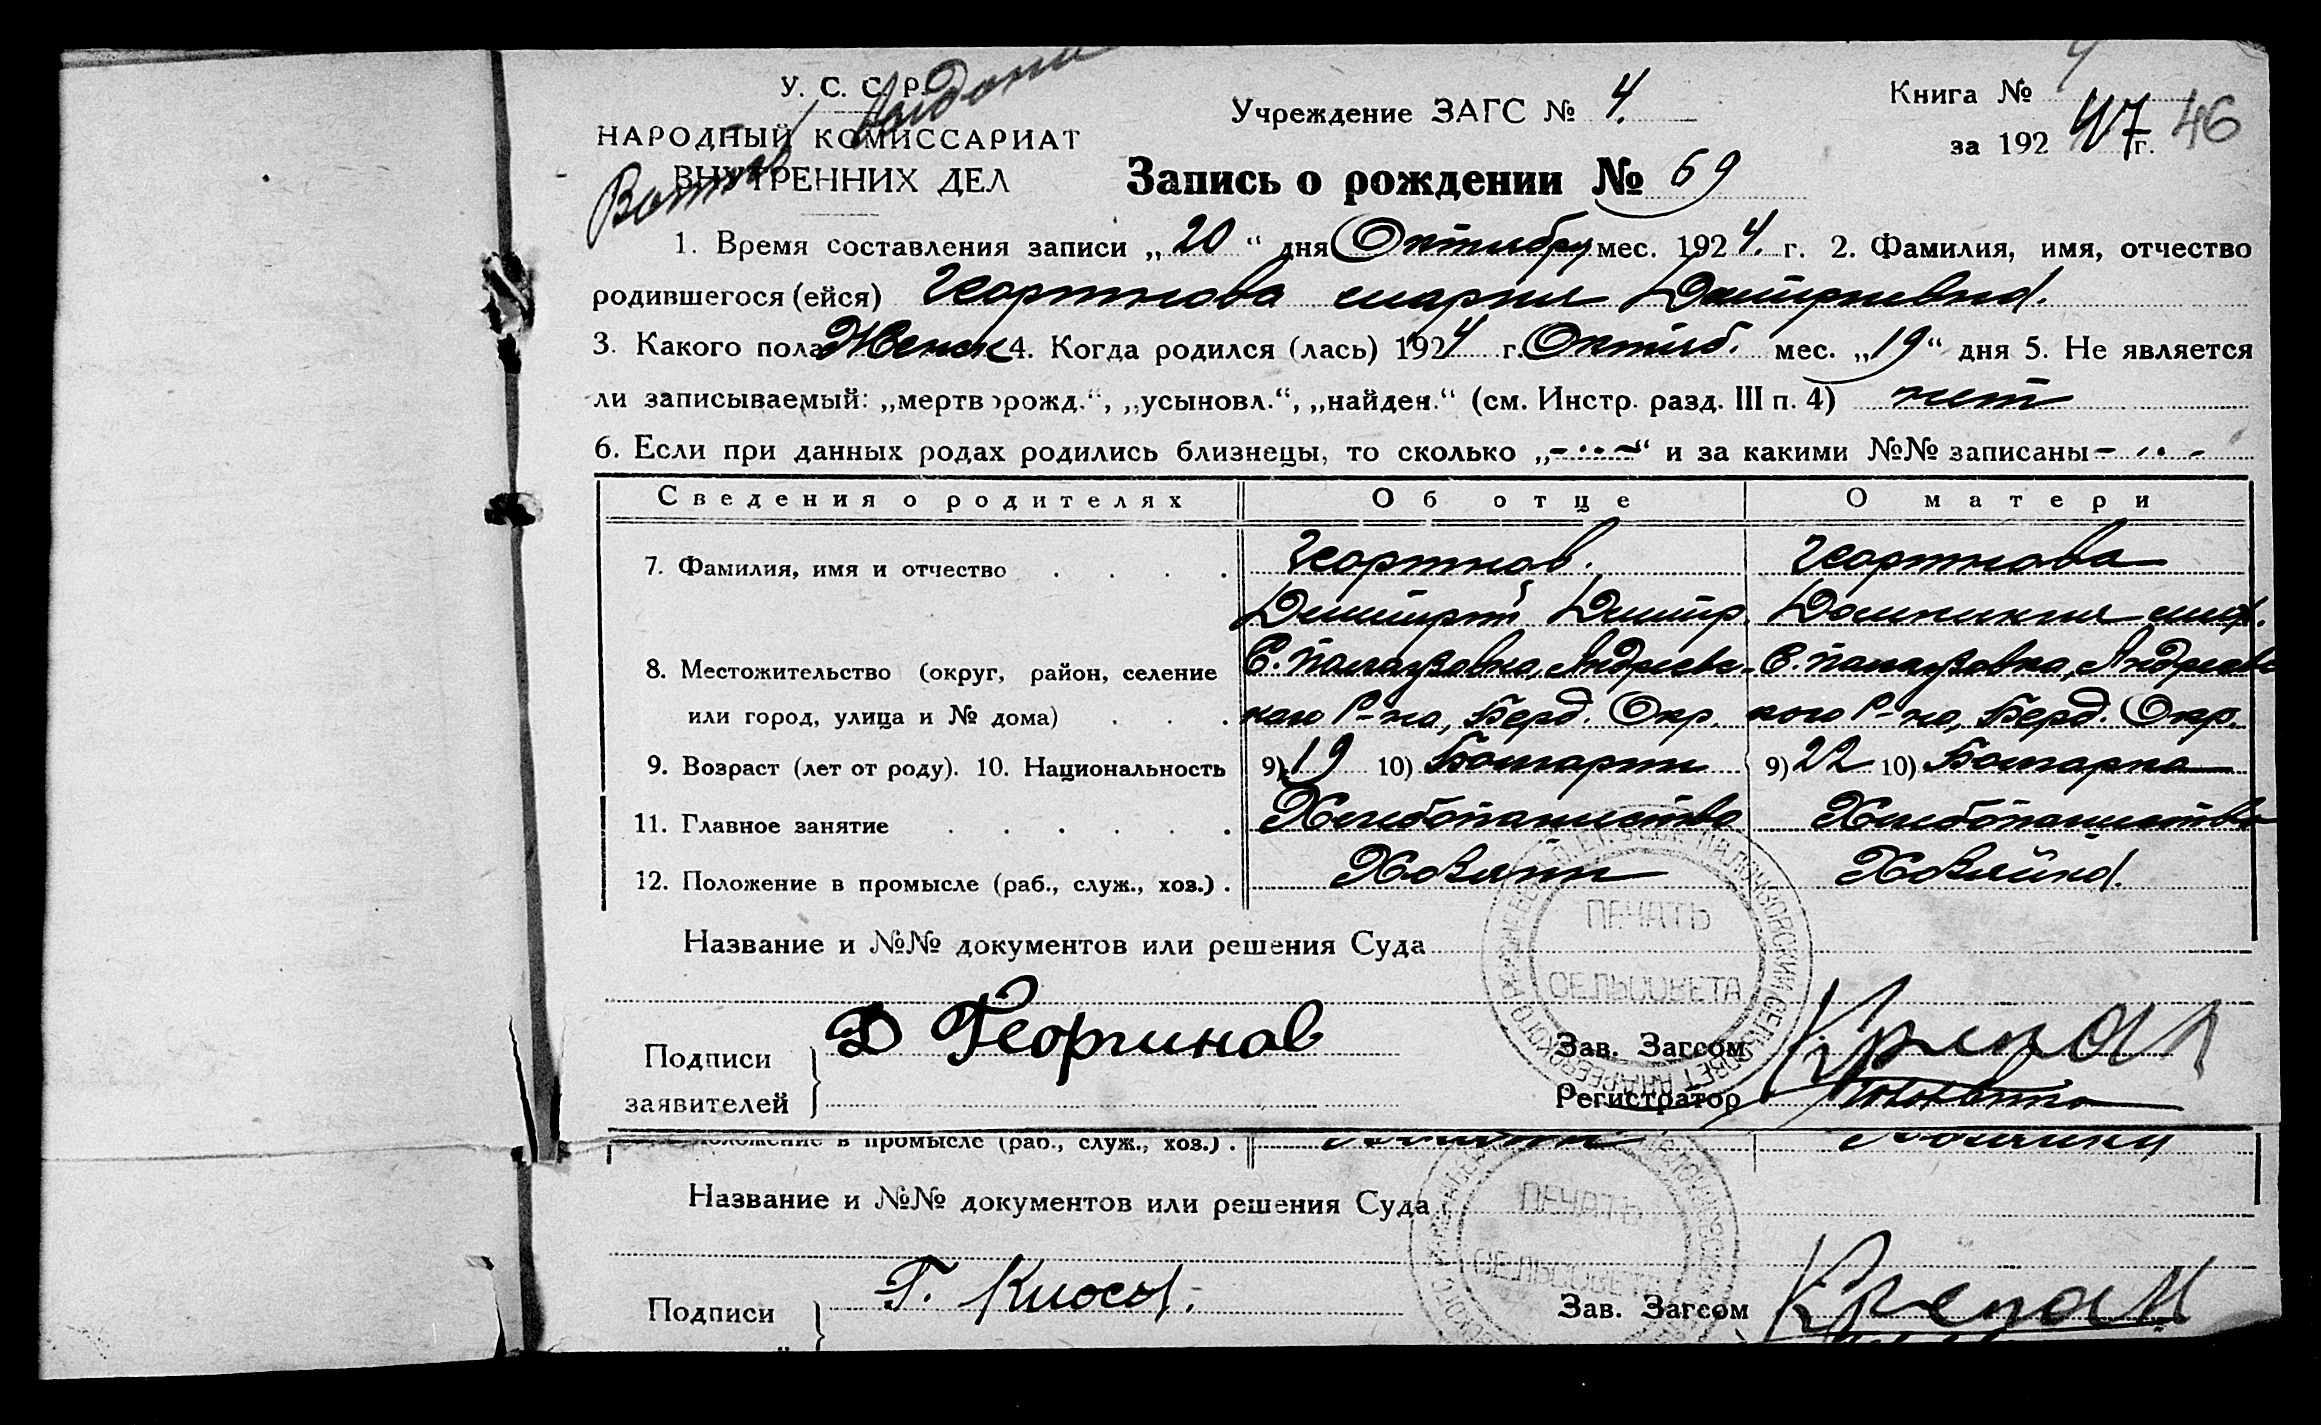 У. С. С. Р.
НАРОДНЫЙ КОМИССАРИАТ
ВНУТРЕННИХ ДЕЛ
Учреждение ЗАГС № 4.
Книга № 4
за 192 4 г. 47 46
Запись о рождении № 69
1. Время составления записи „20“ дня Октября мес. 1924. г. 2. Фамилия, имя, отчество
родившегося (ейся) Георгинова Мария Дмитриевна.
3. Какого пола Женск 4. Когда родился (лась) 1924 г. Октяб. мес. „19“ дня 5. Не является
ли записываемый: „мертворожд.“, „усыновл.“, „найден.“ (см. Инстр. разд. III п. 4) нет
6. Если при данных родах родились близнецы, то сколько „-..-“ и за какими №№ записаны - .. -
Сведения о родителях Об отце О матери
7. Фамилия, имя и отчество . . . . Георгинов. Георгинова
Димитрий Димитр. Домникия
8. Местожительство (округ, район, селение С. Палаузовка, Андреевс- С. Палаузовка, Андреевс
или город, улица и № дома) . . . кого Р-на, Берд. Окр. кого Р-на, Берд. Окр.
9. Возраст (лет от роду). 10. Национальность 9) 19 10) Болгарин 9) 22 10) Болгарка
11. Главное занятие . . . . . . Хлебопашество Хлебопашество
12. Положение в промысле (раб., служ., хоз.) . Хозяин Хозяйка.
ПЕЧАТЬ
СЕЛЬСОВЕТА
Название и №№ документов или решения Суда
Подписи
заявителей
Д Георгинов
Зав. Загсом
Регистратор
положение в промысле (раб., служ., хоз.) .
Название и №№ документов или решения Суда
ПЕЧАТЬ
СЕЛЬСОВЕТА
Подписи Г. Киосы. Зав. Загсом